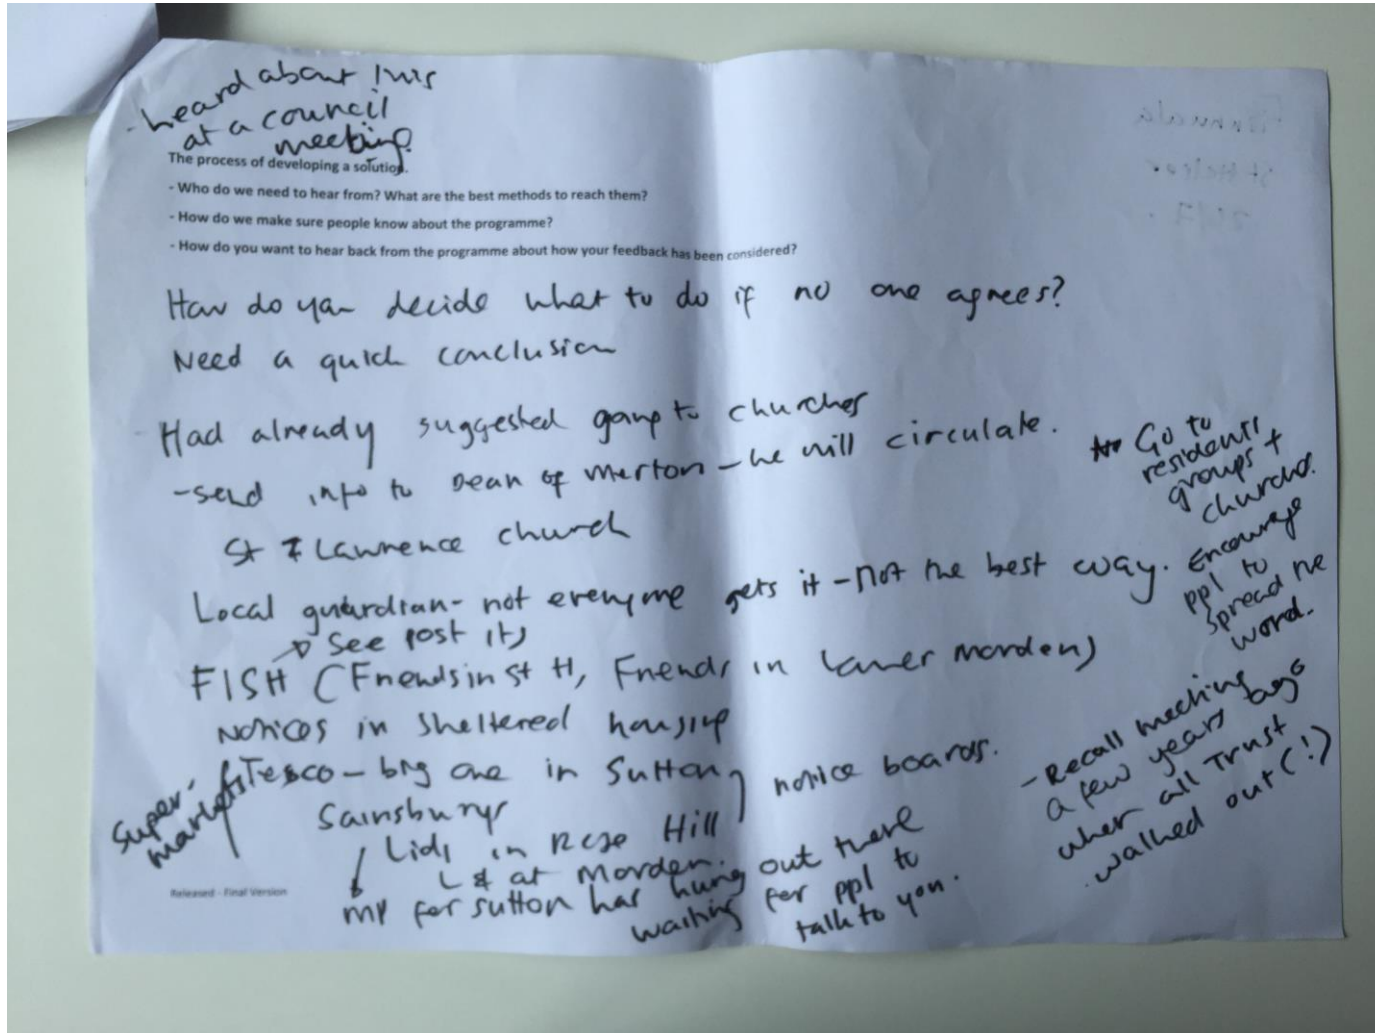 - heard about this
at a council
meeting.
The process of developing a solution.
- Who do we need to hear from? What are the best methods to reach them?
- How do we make sure people know about the programme?
- How do you want to hear back from the programme about how your feedback has been considered?
How do you decide what to do if no one agrees?
Need a quick conclusion
Had already suggested going to churches
- send info to Dean of Merton - he will circulate.
St Lawrence church
Local guardian - not everyone gets it - not the best way.
→ See post its
FISH (Friends in St H, Friends in Lower Morden)
Notices in sheltered housing
Super-
markets
Tesco - big one in Sutton
Sainsburys
Lidl in Rose Hill
L & at Morden.
notice boards.
MP for Sutton has hung out there
waiting for ppl to
talk to you.
Go to
residents
groups +
churches.
Encourage
ppl to
spread the
word.
- Recall meeting
a few years ago
when all Trust
walked out (!)
Released - Final Version